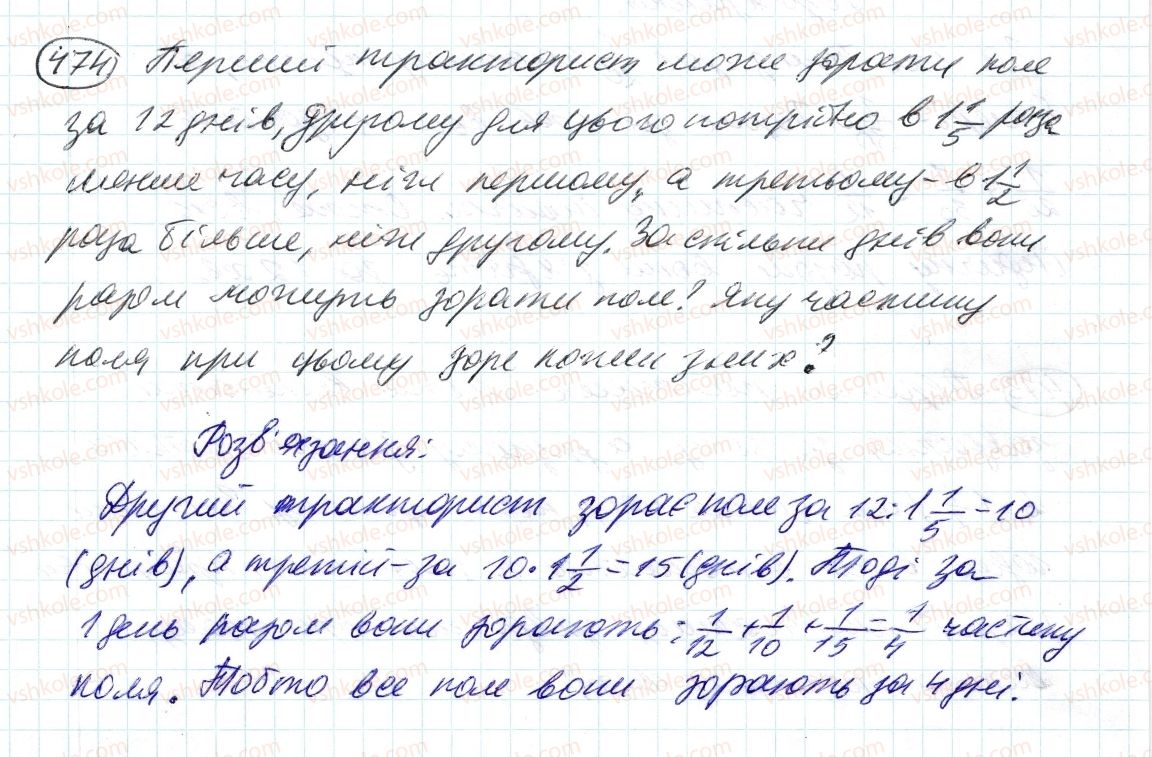 474 Перший тракторист може зорати поле
за 12 днів, другому для цього потрібно в 1 1/5 раза
менше часу, ніж першому, а третьому – в 1 1/2
раза більше, ніж другому. За скільки днів вони
разом можуть зорати поле? Яку частину
поля при цьому зоре кожен з них?
Розв'язання:
Другий тракторист зорає поле за 12 : 1 1/5 = 10
(днів), а третій – за 10 · 1 1/2 = 15 (днів). Тоді за
1 день разом вони зорають: 1/12 + 1/10 + 1/15 = 1/4 частину
поля. Тобто все поле вони зорають за 4 дні.
vshkole.com